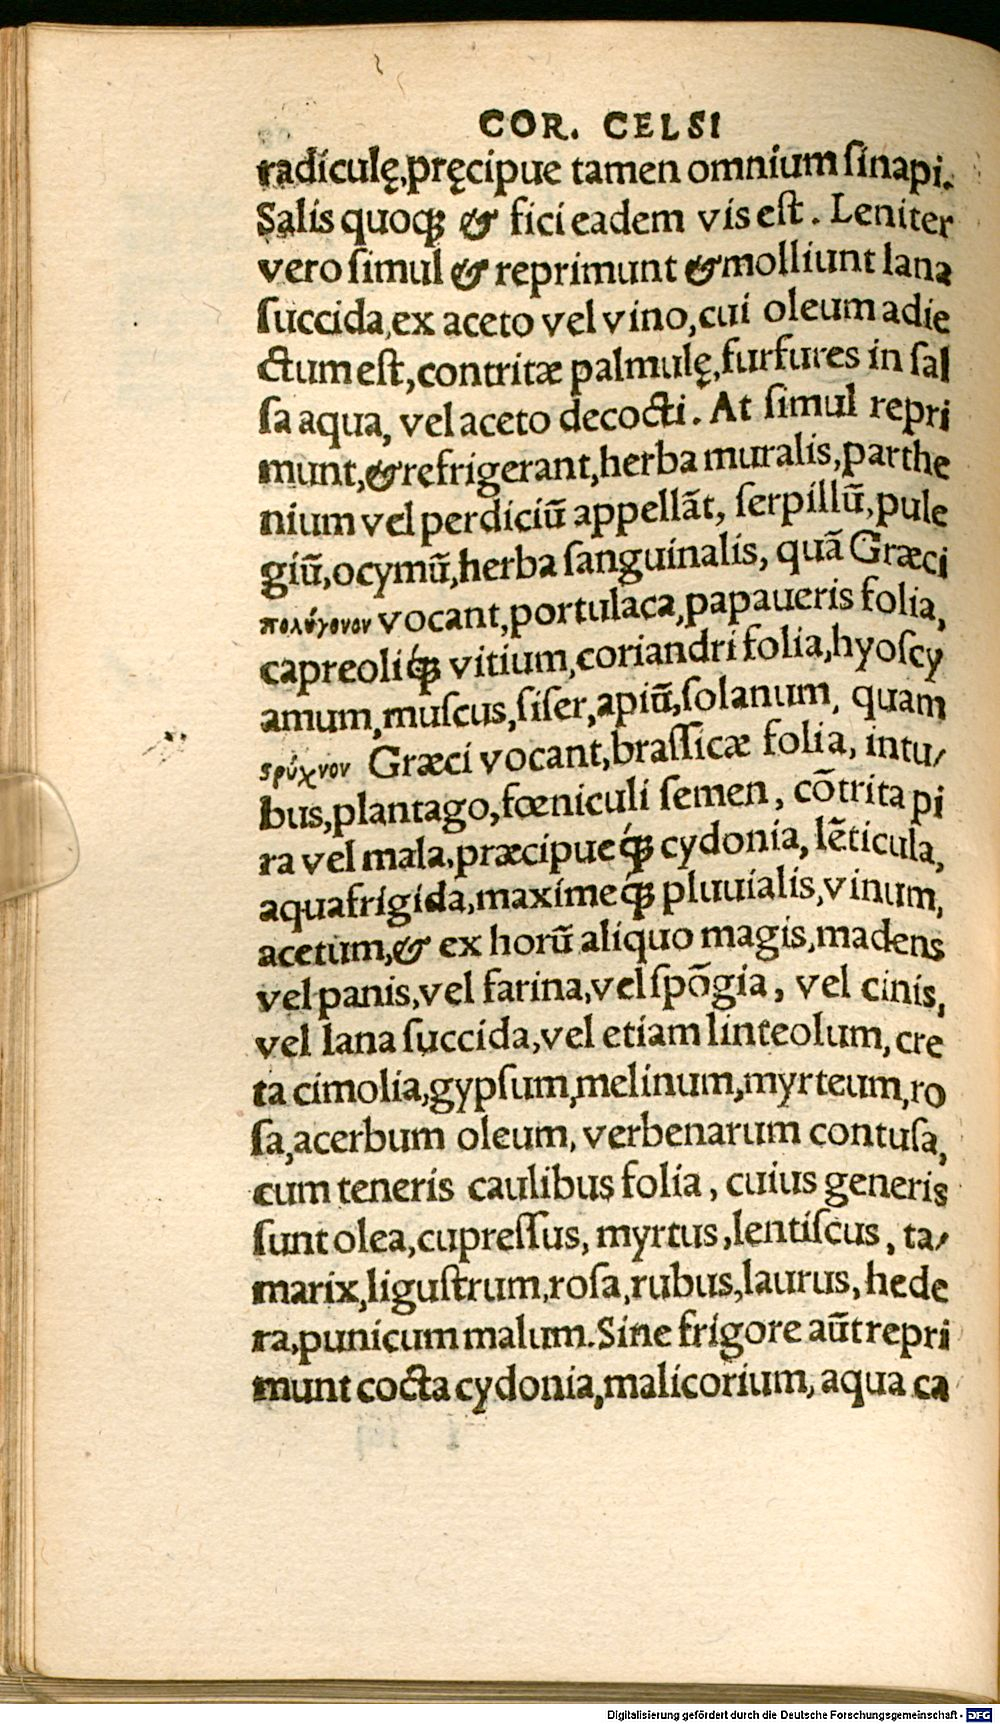 COR. CELSI
radiculę,pręcipue tamen omnium ſinapi.
Salis quoqꝫ & fici eadem vis eſt. Leniter
vero ſimul & reprimunt & molliunt lana
ſuccida,ex aceto vel vino,cui oleum adie
ctum eſt,contritæ palmulę,furfures in ſal
ſa aqua, vel aceto decocti. At ſimul repri
munt,& refrigerant,herba muralis,parthe
nium vel perdiciū appellāt, ſerpillū,pule
giū,ocymū,herba ſanguinalis, quā Græci
πολύγονον vocant,portulaca,papaueris folia,
capreoliq́ꝫ vitium,coriandri folia,hyoſcy
amum,muſcus,ſiſer,apiū,ſolanum, quam
ϛρύχνον Græci vocant,braſſicæ folia, intu/
bus,plantago,fœniculi ſemen, cōtrita pi
ra vel mala,præcipueq́ꝫ cydonia, lēticula,
aqua frigida,maximeq́ꝫ pluuialis,vinum,
acetum,& ex horū aliquo magis,madens
vel panis,vel farina,vel ſpōgia, vel cinis,
vel lana ſuccida,vel etiam linteolum, cre
ta cimolia,gypſum,melinum,myrteum,ro
ſa,acerbum oleum, verbenarum contuſa,
cum teneris caulibus folia, cuius generis
ſunt olea,cupreſſus, myrtus,lentiſcus, ta/
marix,liguſtrum,roſa,rubus,laurus, hede
ra,punicum malum.Sine frigore aūt repri
munt cocta cydonia,malicorium, aqua ca
Digitalisierung gefördert durch die Deutsche Forschungsgemeinschaft - DFG